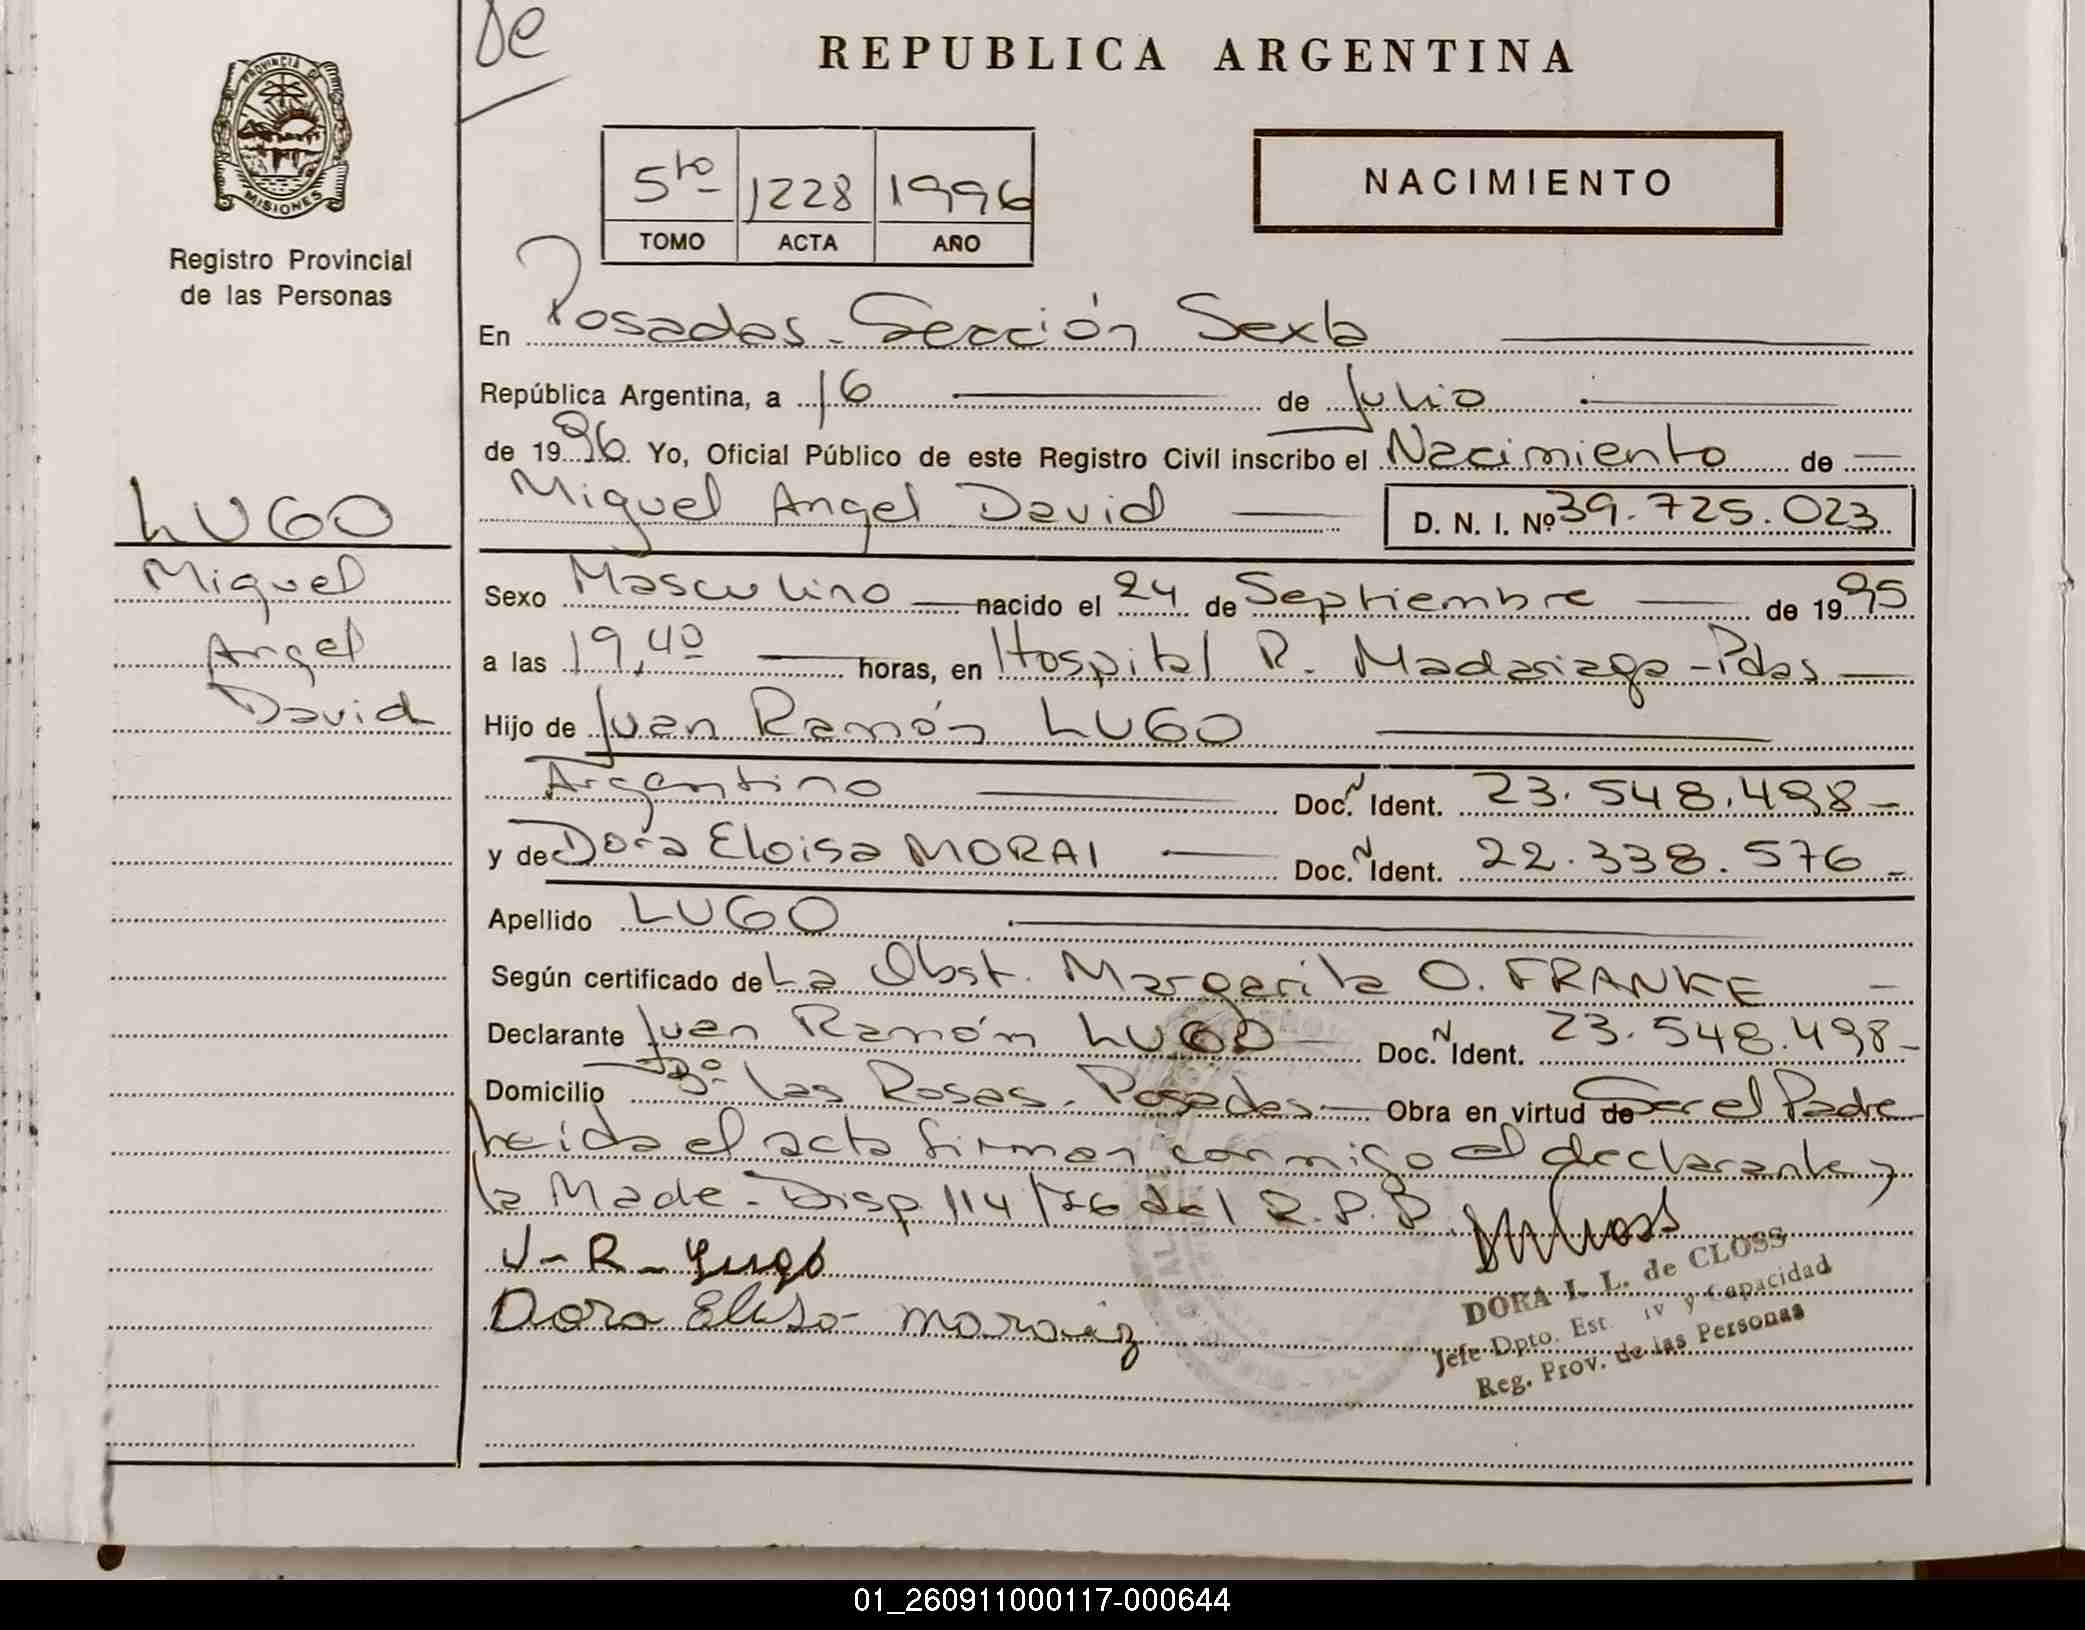 De
REPUBLICA ARGENTINA
PROVINCIA DE
MISIONES
Registro Provincial
de las Personas
5to 1228 1996
TOMO ACTA AÑO
NACIMIENTO
En Posadas - Sección Sexta
República Argentina, a 16 de Julio
de 1996. Yo, Oficial Público de este Registro Civil inscribo el Nacimiento de
Miguel Angel David D. N. I. Nº 39.725.023
LUGO
Miguel
Angel
David
Sexo Masculino nacido el 24 de Septiembre de 1995
a las 19,40 horas, en Hospital R. Madariaga - Pdas
Hijo de Juan Ramón LUGO
Argentino Doc. N Ident. 23.548.498
y de Dora Eloisa MORAI Doc. N Ident. 22.338.576
Apellido LUGO
Según certificado de La Obst. Margarita O. FRANKE
Declarante Juan Ramón LUGO Doc. N Ident. 23.548.498
Domicilio Bº las Rosas - Posadas Obra en virtud de Ser el Padre
Leída el acta firman conmigo el declarante y
la Madre - Disp. 114/76 del R.P.P.
J-R-Lugo
Dora Elisa
DORA I. L. de CLOSS
Jefe Dpto. Est. IV y Capacidad
Reg. Prov. de las Personas
01_260911000117-000644